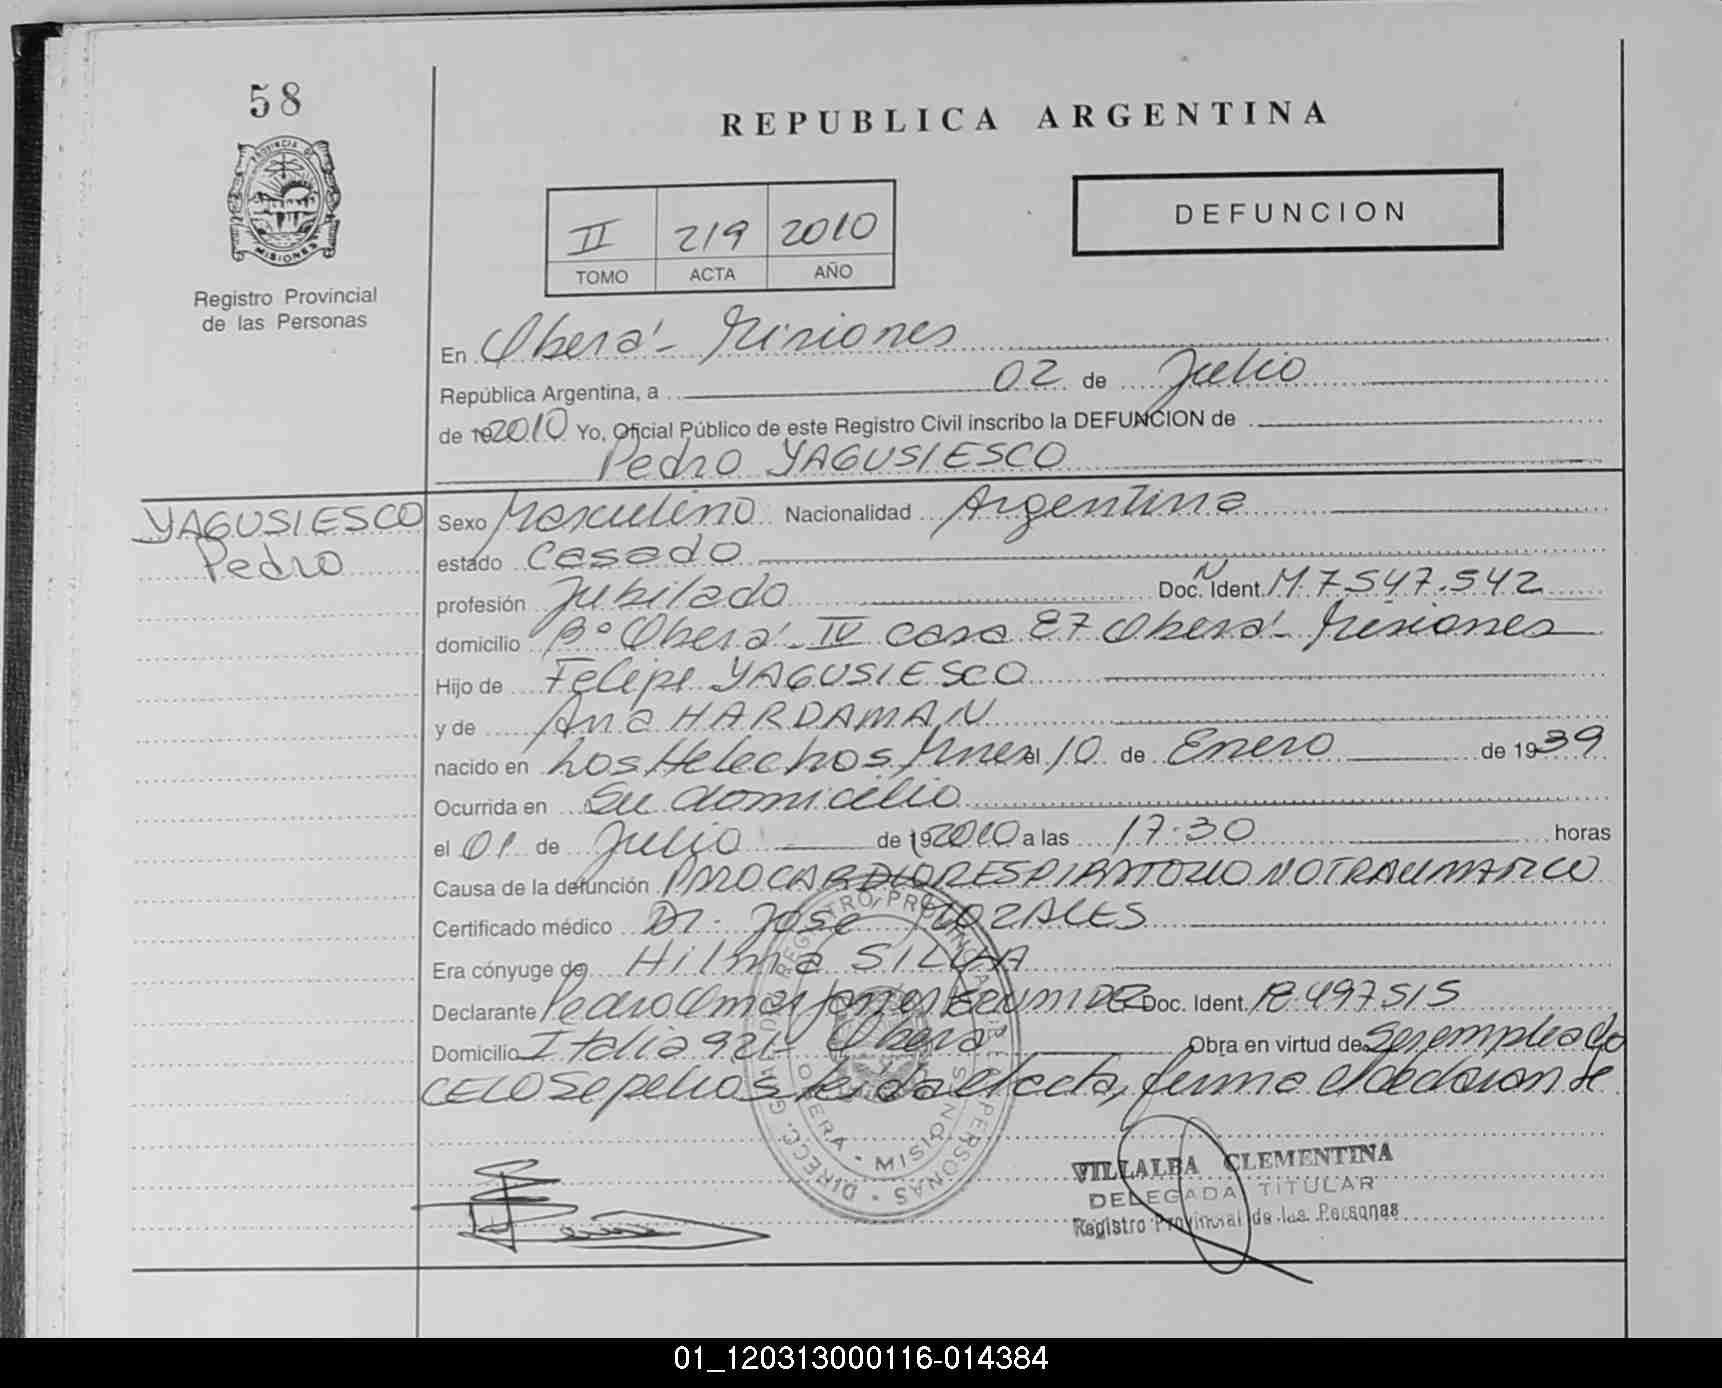 58
PROVINCIA DE
MISIONES
Registro Provincial
de las Personas
REPUBLICA ARGENTINA
II 219 2010
TOMO ACTA AÑO
DEFUNCION
En Oberá - Misiones
República Argentina, a 02 de Julio
de 192010 Yo, Oficial Público de este Registro Civil inscribo la DEFUNCION de
Pedro YAGUSIESCO
YAGUSIESCO
Pedro
Sexo Masculino Nacionalidad Argentina
estado Casado
profesión Jubilado Doc. N Ident. M. 7.547.542
domicilio B° Oberá - IV casa 87 Oberá - Misiones
Hijo de Felipe YAGUSIESCO
y de Ana HARDAMAN
nacido en Los Helechos Mnes el 10 de Enero de 1939
Ocurrida en Su domicilio
el 01 de Julio de 192010 a las 17:30 horas
Causa de la defunción PARO CARDIORESPIRATORIO NO TRAUMATICO
Certificado médico Dr. José
Era cónyuge de Hilma SILVA
Declarante Pedro Omar Doc. Ident. 18.497515
Domicilio Italia 921 - Oberá Obra en virtud de ser empleado
CELO Sepelios leida el acta, firma el declarante
REGISTRO PROVINCIAL DE LAS PERSONAS
OBERA - MISIONES
VILLALBA CLEMENTINA
DELEGADA TITULAR
Registro Provincial de las Personas
01_120313000116-014384